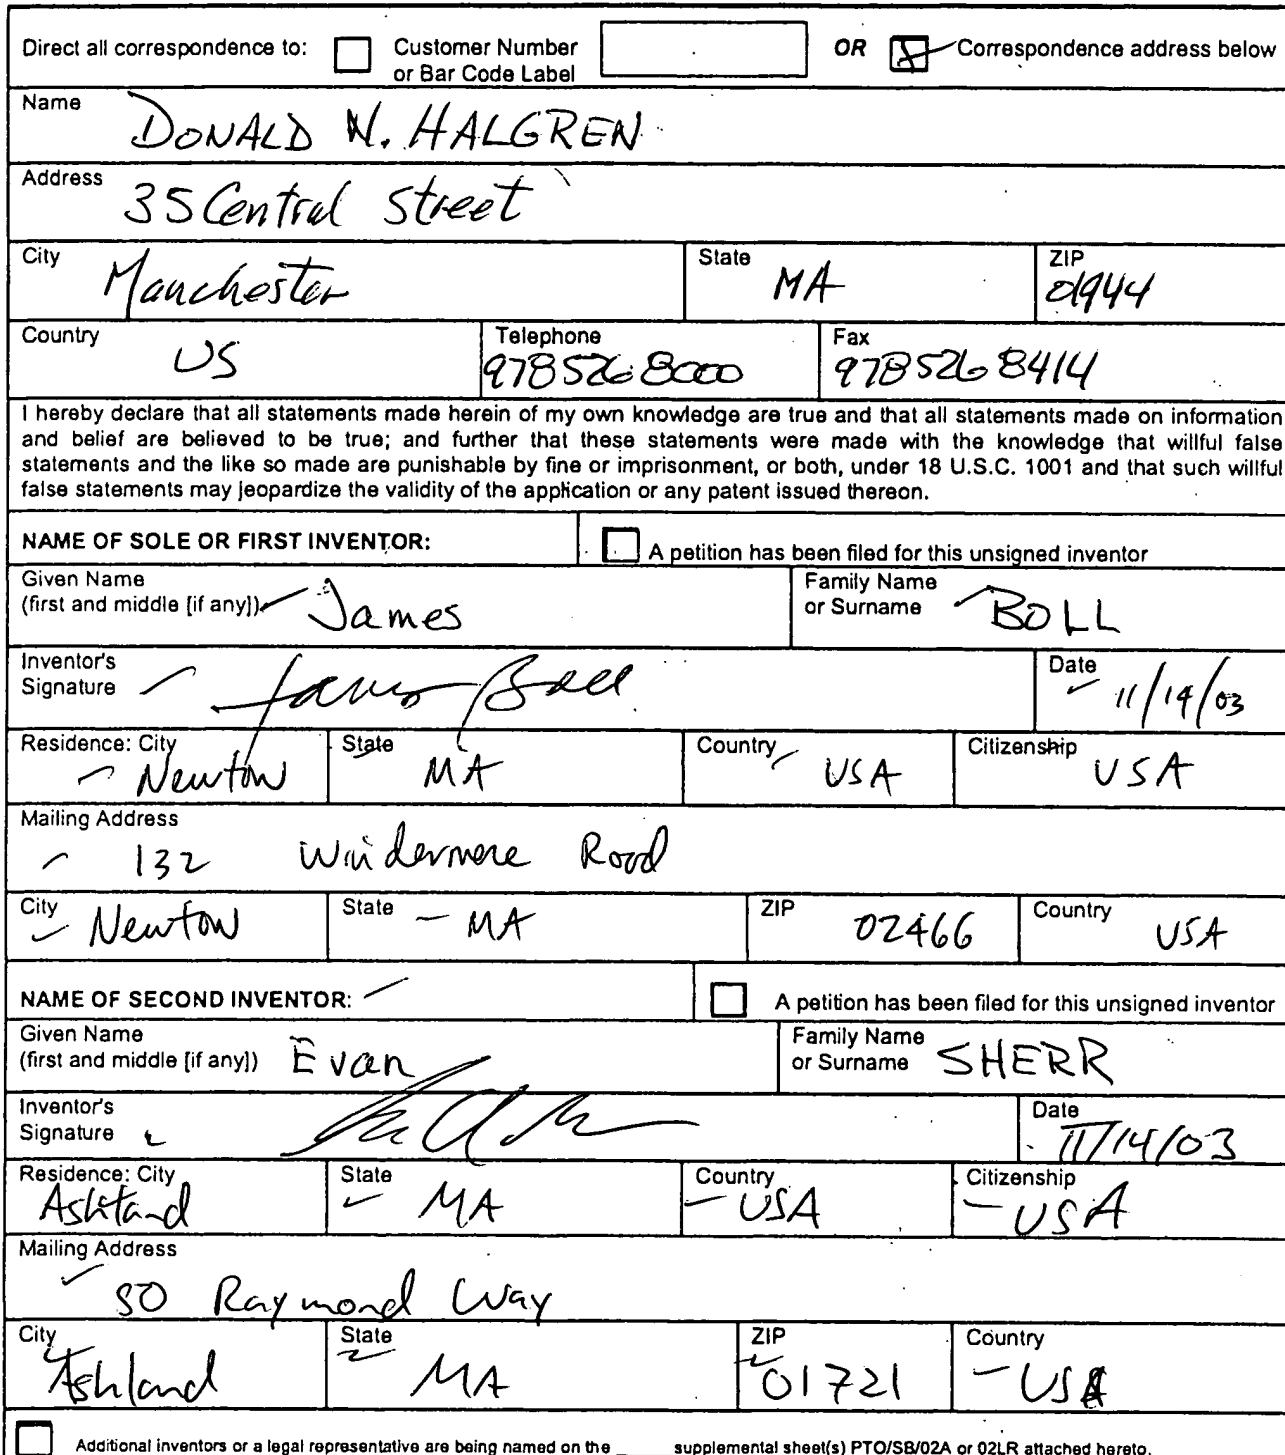 Direct all correspondence to: Customer Number or Bar Code Label OR Correspondence address below
Name
DONALD N. HALGREN
Address
35 Central Street
City Manchester State MA ZIP 01944
Country US Telephone 9785268000 Fax 9785268414
I hereby declare that all statements made herein of my own knowledge are true and that all statements made on information
and belief are believed to be true; and further that these statements were made with the knowledge that willful false
statements and the like so made are punishable by fine or imprisonment, or both, under 18 U.S.C. 1001 and that such willful
false statements may jeopardize the validity of the application or any patent issued thereon.
NAME OF SOLE OR FIRST INVENTOR: A petition has been filed for this unsigned inventor
Given Name
(first and middle [if any]) James
Family Name
or Surname BOLL
Inventor's
Signature James Boll
Date 11/14/03
Residence: City Newton State MA Country USA Citizenship USA
Mailing Address
132 Windermere Road
City Newton State MA ZIP 02466 Country USA
NAME OF SECOND INVENTOR: A petition has been filed for this unsigned inventor
Given Name
(first and middle [if any]) Evan
Family Name
or Surname SHERR
Inventor's
Signature
Date 11/14/03
Residence: City Ashland State MA Country USA Citizenship USA
Mailing Address
Raymond Way
City Ashland State MA ZIP 01721 Country USA
Additional inventors or a legal representative are being named on the _____ supplemental sheet(s) PTO/SB/02A or 02LR attached hereto.